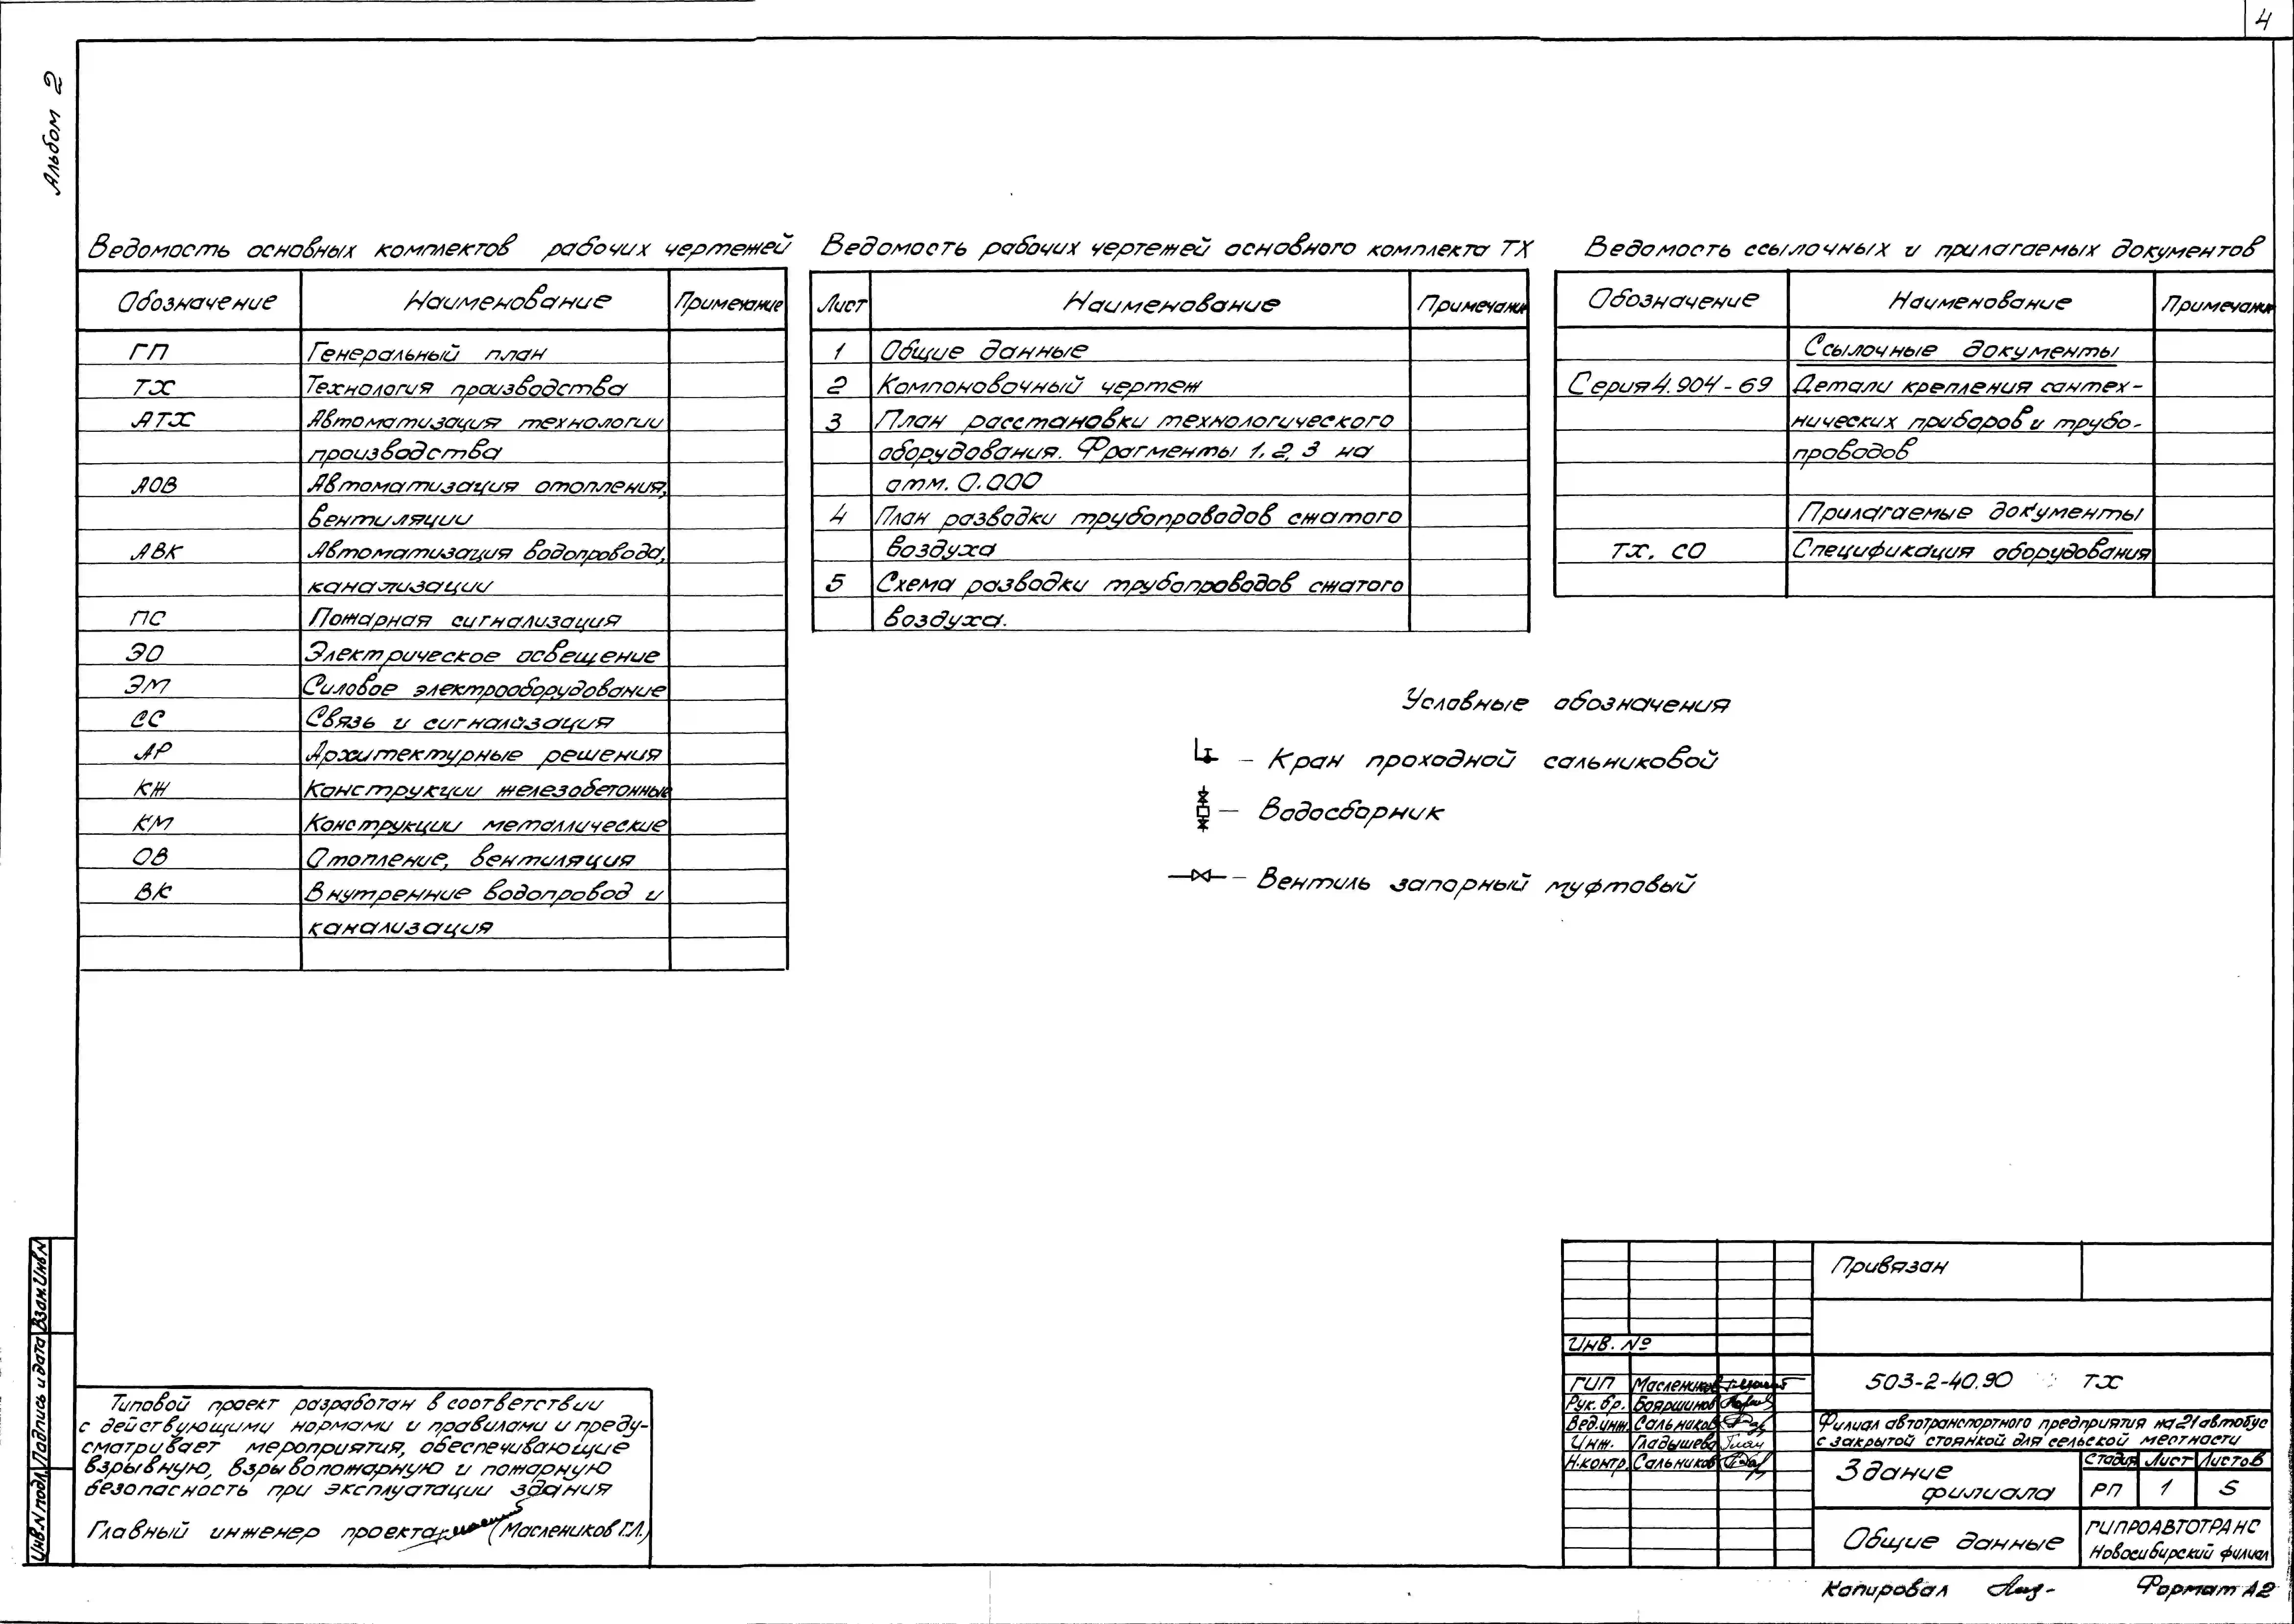 4
Альбом 2
Ведомость основных комплектов рабочих чертежей
Обозначение Наименование Примечание
ГП Генеральный план
ТХ Технология производства
АТХ Автоматизация технологии
производства
АОВ Автоматизация отопления,
вентиляции
АВК Автоматизация водопровода,
канализации
ПС Пожарная сигнализация
ЭО Электрическое освещение
ЭМ Силовое электрооборудование
СС Связь и сигнализация
АР Архитектурные решения
КЖ Конструкции железобетонные
КМ Конструкции металлические
ОВ Отопление, вентиляция
ВК Внутренние водопровод и
канализация
Ведомость рабочих чертежей основного комплекта ТХ
Лист Наименование Примечание
1 Общие данные
2 Компоновочный чертеж
3 План расстановки технологического
оборудования. Фрагменты 1, 2, 3 на
отм. 0.000
4 План разводки трубопроводов сжатого
воздуха
5 Схема разводки трубопроводов сжатого
воздуха.
Ведомость ссылочных и прилагаемых документов
Обозначение Наименование Примечание
Ссылочные документы
Серия 4.904-69 Детали крепления сантех-
нических приборов и трубо-
проводов
Прилагаемые документы
ТХ. СО Спецификация оборудования
Условные обозначения
– Кран проходной сальниковой
– Водосборник
– Вентиль запорный муфтовый
Инв.N подл. Подпись и дата Взам.Инв.N
Типовой проект разработан в соответствии
с действующими нормами и правилами и преду-
сматривает мероприятия, обеспечивающие
взрывную, взрывопожарную и пожарную
безопасность при эксплуатации здания
Главный инженер проекта (Маслеников Г.Л.)
Привязан
Инв. №
ГИП Маслеников
Рук. бр. Бояршинов
Вед.инж. Сальников
Инж. Гладышева
Н.контр. Сальников
503-2-40.90 ТХ
Филиал автотранспортного предприятия на 21 автобус
с закрытой стоянкой для сельской местности
Здание
филиала
Стадия Лист Листов
РП 1 5
Общие данные
ГИПРОАВТОТРАНС
Новосибирский филиал
Копировал
Формат А2